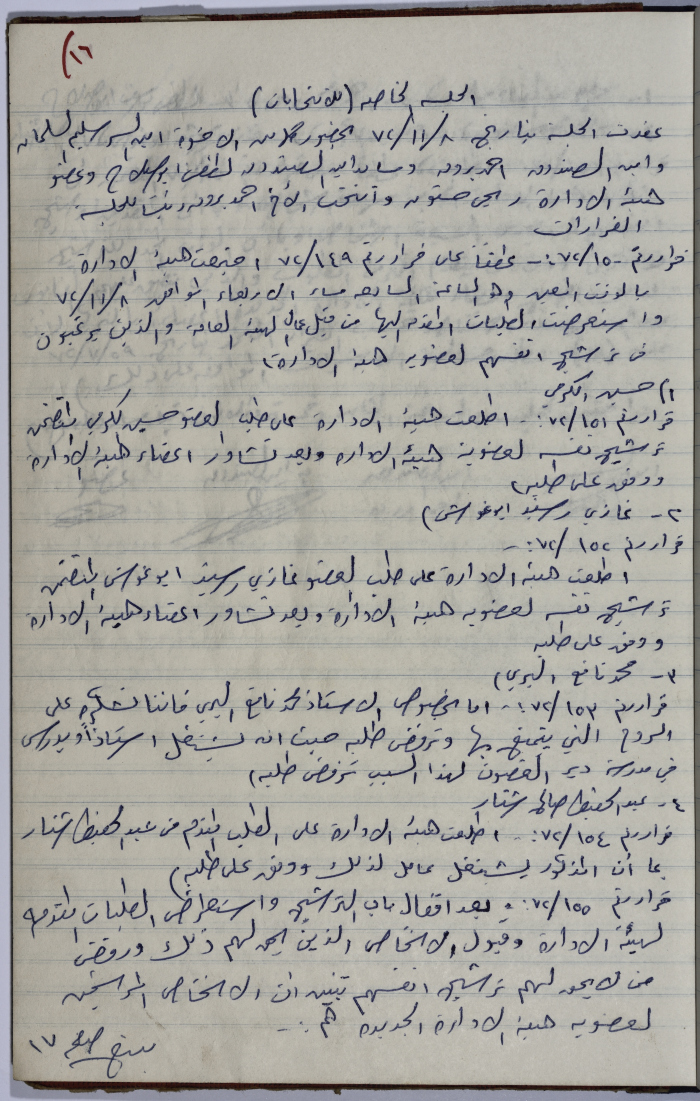 ١٦)
الجلسه الخاصه (للانتخابات)
عقدت الجلسة بتاريخ ٧٢/١١/٨ بحضور كلا من الاخوة امين السر سليم السلمان
وامين الصندوق احمد وساعد امين الصندوق لطفي ابو وعضو
هيئة الادارة وانتخب الأخ احمد رئيسا للجلسة
القرارات
قرار رقم ٧٢/١٥٠:- عطفاً على قرار رقم ٧٢/١٤٩ اجتمعت هيئة الادارة
بالوقت المعين وهو الساعة السابعه مساء الاربعاء الموافق ٧٢/١١/٨
واستعرضت الطلبات المقدمه اليها من قبل عمال الهيئه العامة والذين يرغبون
في ترشيح انفسهم لعضويه هيئة الادارة.
١) حسين الكرمي
قرار رقم ٧٢/١٥١:- اطلعت هيئة الادارة على طلب العضو حسين الكرمي المتضمن
ترشيح نفسه لعضوية هيئة الاداره وبعد تشاور اعضاء هيئة الادارة
ووفق على طلبه)
٢- غازي رشيد ابو غوش)
قرار رقم ٧٢/١٥٢:-
اطلعت هيئة الادارة على طلب العضو غازي رشيد ابو غوش المتضمن
ترشيح نفسه لعضويه هيئة الادارة وبعد تشاور اعضاء هيئة الادارة
ووفق على طلبه
٣- محمد نافع)
قرار رقم ٧٢/١٥٣:- اما بخصوص الاستاذ محمد نافع فاننا نشكره على
الروح التي يتمتع بها ونرفض طلبه حيث انه يشتغل استاذاً ويدرس
في مدرسة دير الغصون لهذا السبب نرفض طلبه)
٤- عبد الحفيظ صالح شنار
قرار رقم ٧٢/١٥٤:- اطلعت هيئة الادارة على الطلب المقدم من عبد الحفيظ شنار
بما أن المذكور يشتغل عامل لذلك ووفق على طلبه)
قرار رقم ٧٢/١٥٥:- بعد اقفال باب الترشيح واستعراض الطلبات المقدمه
لهيئة الادارة وقبول الاشخاص الذين يحق لهم ذلك ورفض
من لا يحق لهم ترشيح انفسهم تبين ان الاشخاص المرشحين
لعضويه هيئة الادارة الجديدة هم:-
يتبع صفحه ١٧